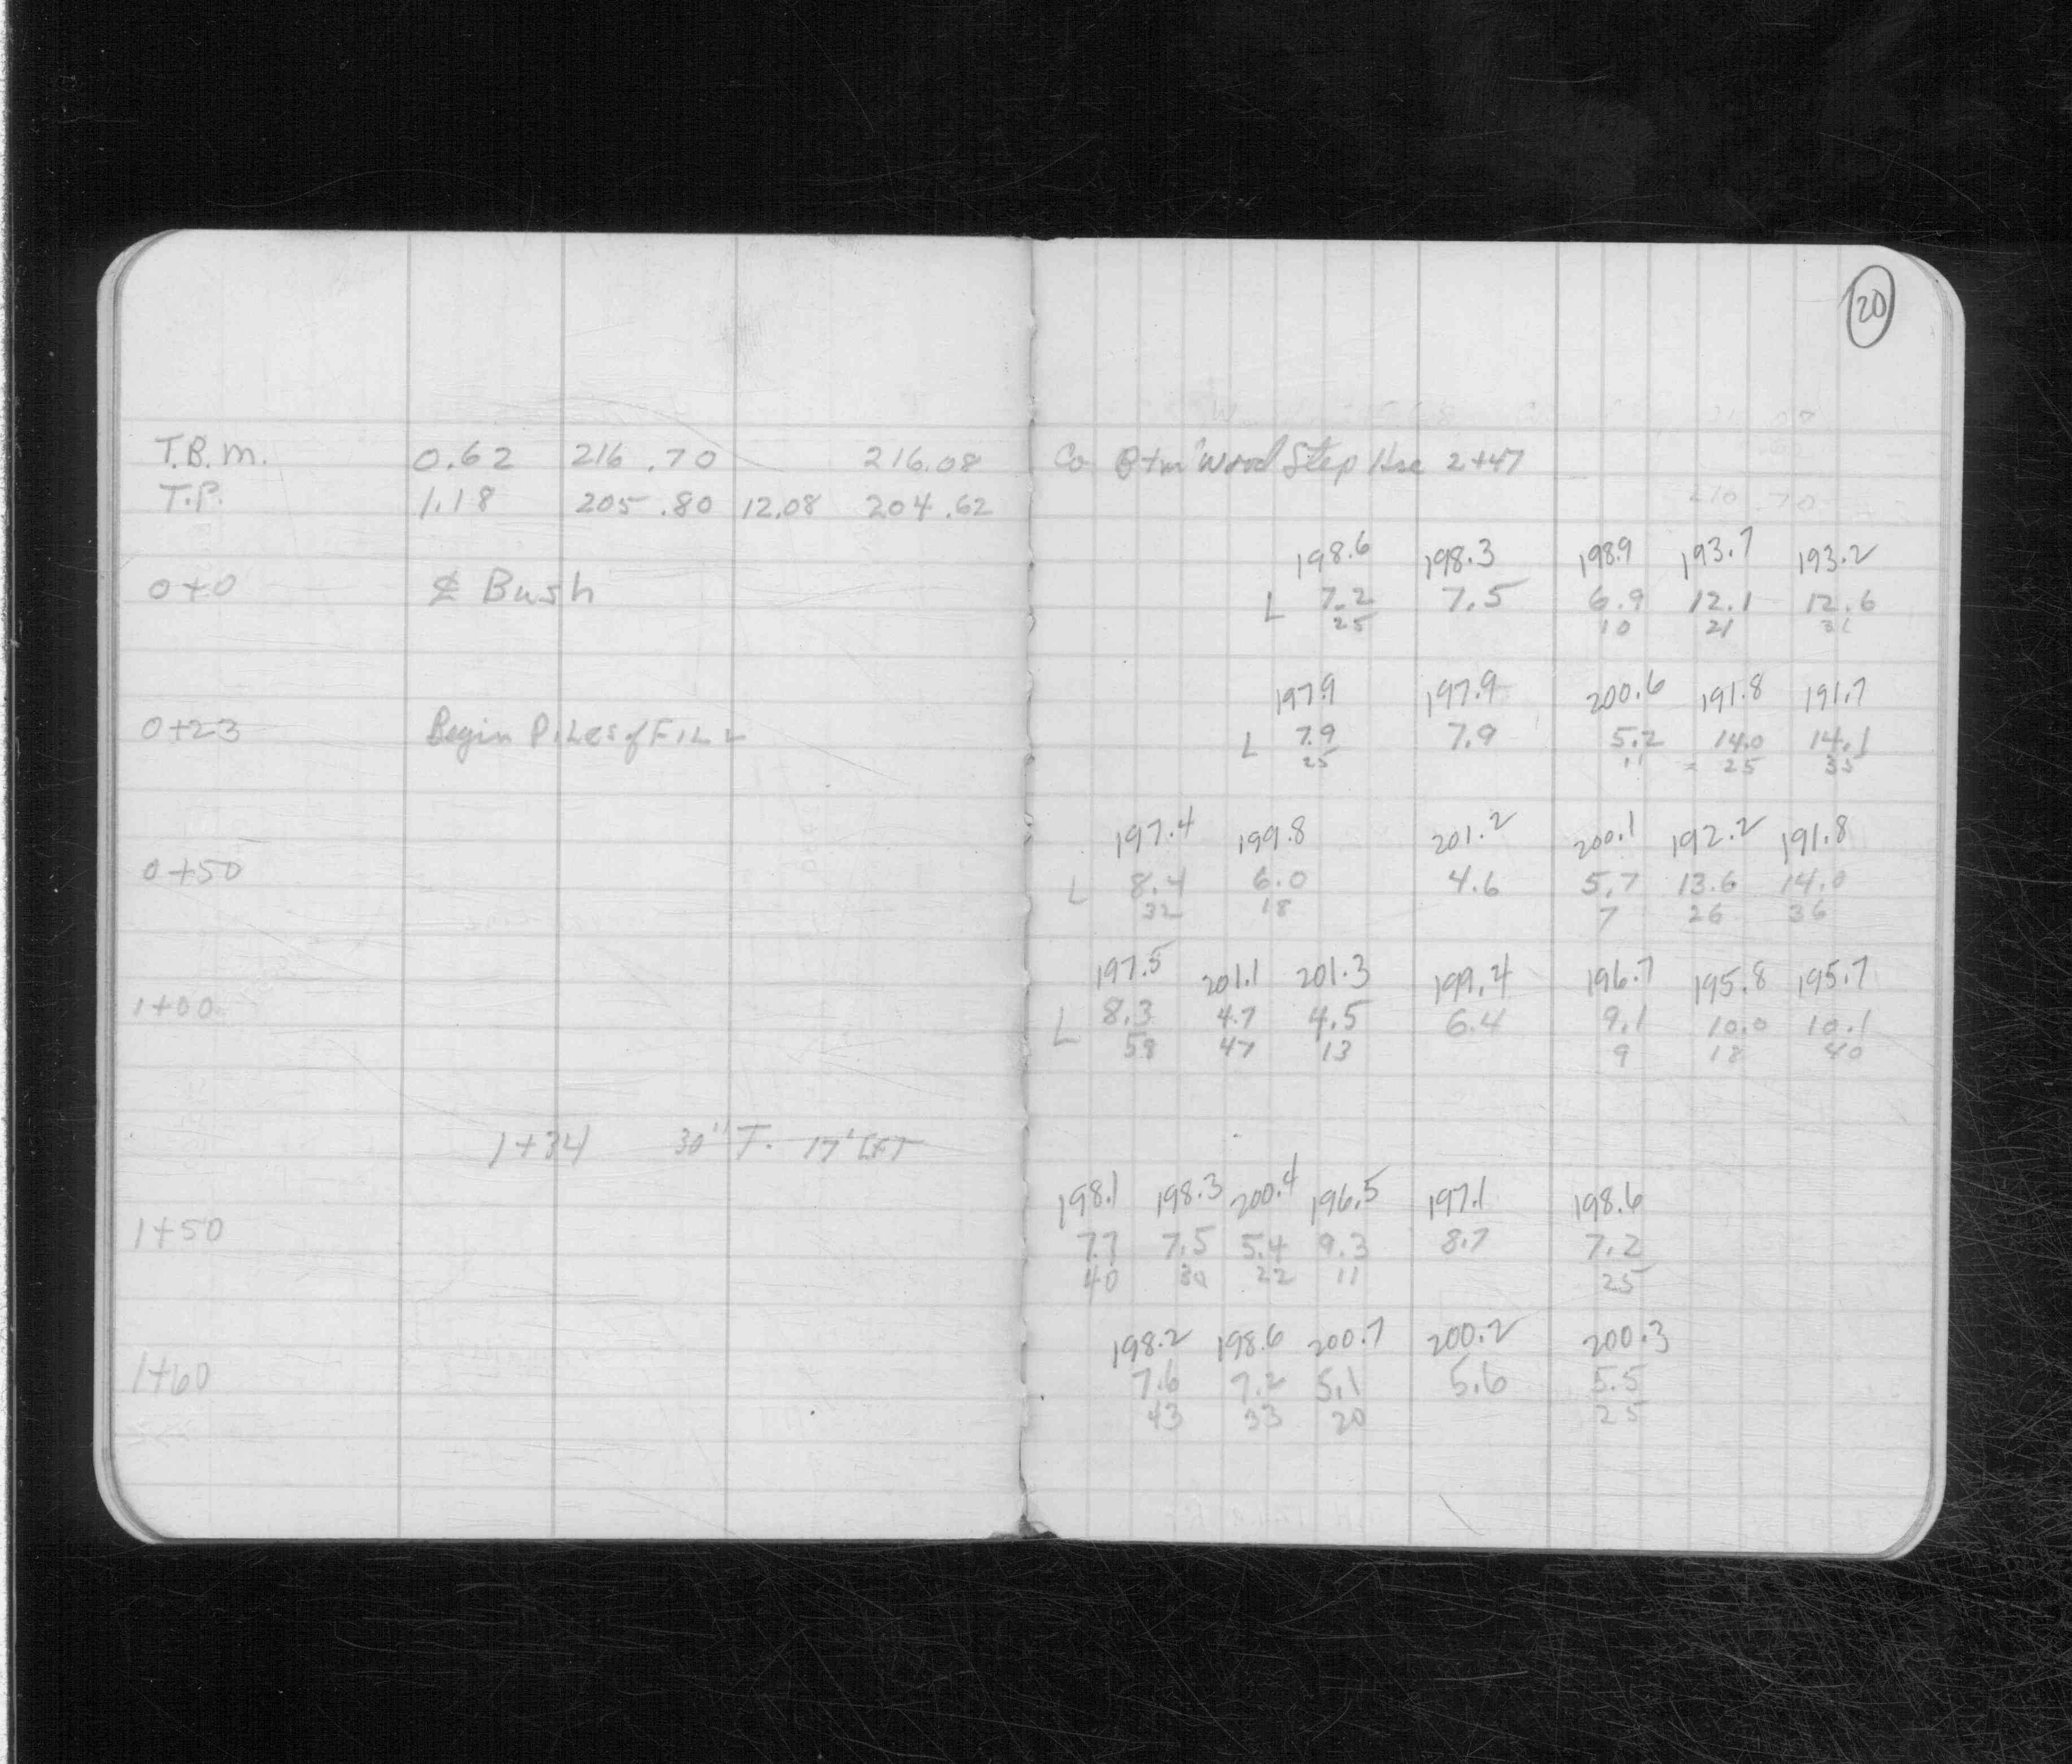 20
T.B.M. 0.62 216.70 216.08 Co Btm Wood Step Hse 2+47
T.P. 1.18 205.80 12.08 204.62
216.70
198.6 198.3 198.9 193.7 193.2
0+0 ℄ Bush L 7.2 7.5 6.9 12.1 12.6
25 10 21 31
197.9 197.9 200.6 191.8 191.7
0+23 Begin Piles of FILL L 7.9 7.9 5.2 14.0 14.1
25 11 25 35
197.4 199.8 201.2 200.1 192.2 191.8
0+50 L 8.4 6.0 4.6 5.7 13.6 14.0
32 18 7 26 36
197.5 201.1 201.3 199.4 196.7 195.8 195.7
1+00 L 8.3 4.7 4.5 6.4 9.1 10.0 10.1
58 47 13 9 18 40
1+34 30" T. 17' Left
198.1 198.3 200.4 196.5 197.1 198.6
1+50 7.7 7.5 5.4 9.3 8.7 7.2
40 30 22 11 25
198.2 198.6 200.7 200.2 200.3
1+60 7.6 7.2 5.1 5.6 5.5
43 33 20 25